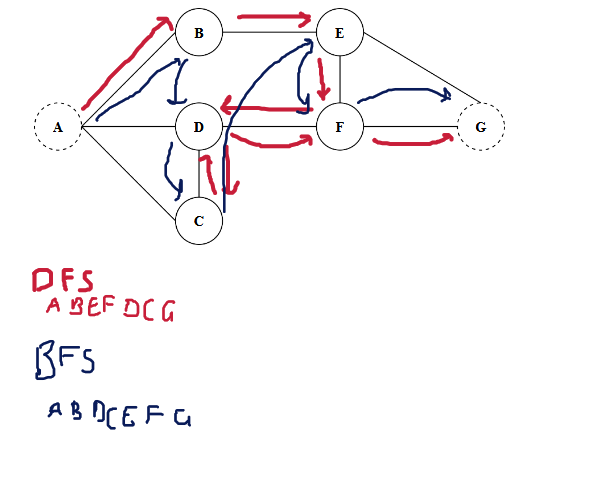 B E
A D F G
C
DFS
ABEFDCG
BFS
ABDCEFG